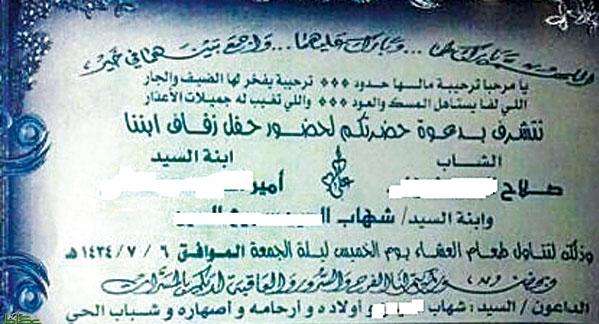 اللهم بارك لهما ... وبارك عليهما ... واجمع بينهما في خير
يا مرحبا ترحيبة مالها حدود *** ترحيبة يفخر لها الضيف والجار
اللي لفا يستاهل المسك والعود *** واللي تغيب له جميلات الأعذار
نتشرف بدعوة حضرتكم لحضور حفل زفاف ابننا
الشاب
ابنة السيد
صلاح
أمير
وابنة السيد/ شهاب
وذلك لتناول طعام العشاء يوم الخميس ليلة الجمعة الموافق ٦ / ٧ / ١٤٣٤ هـ
وبحضوركم يتم لنا الفرح والسرور والعاقبة لديكم بالمسرات
الداعون / السيد: شهاب وأولاده وأرحامه وأصهاره وشباب الحي